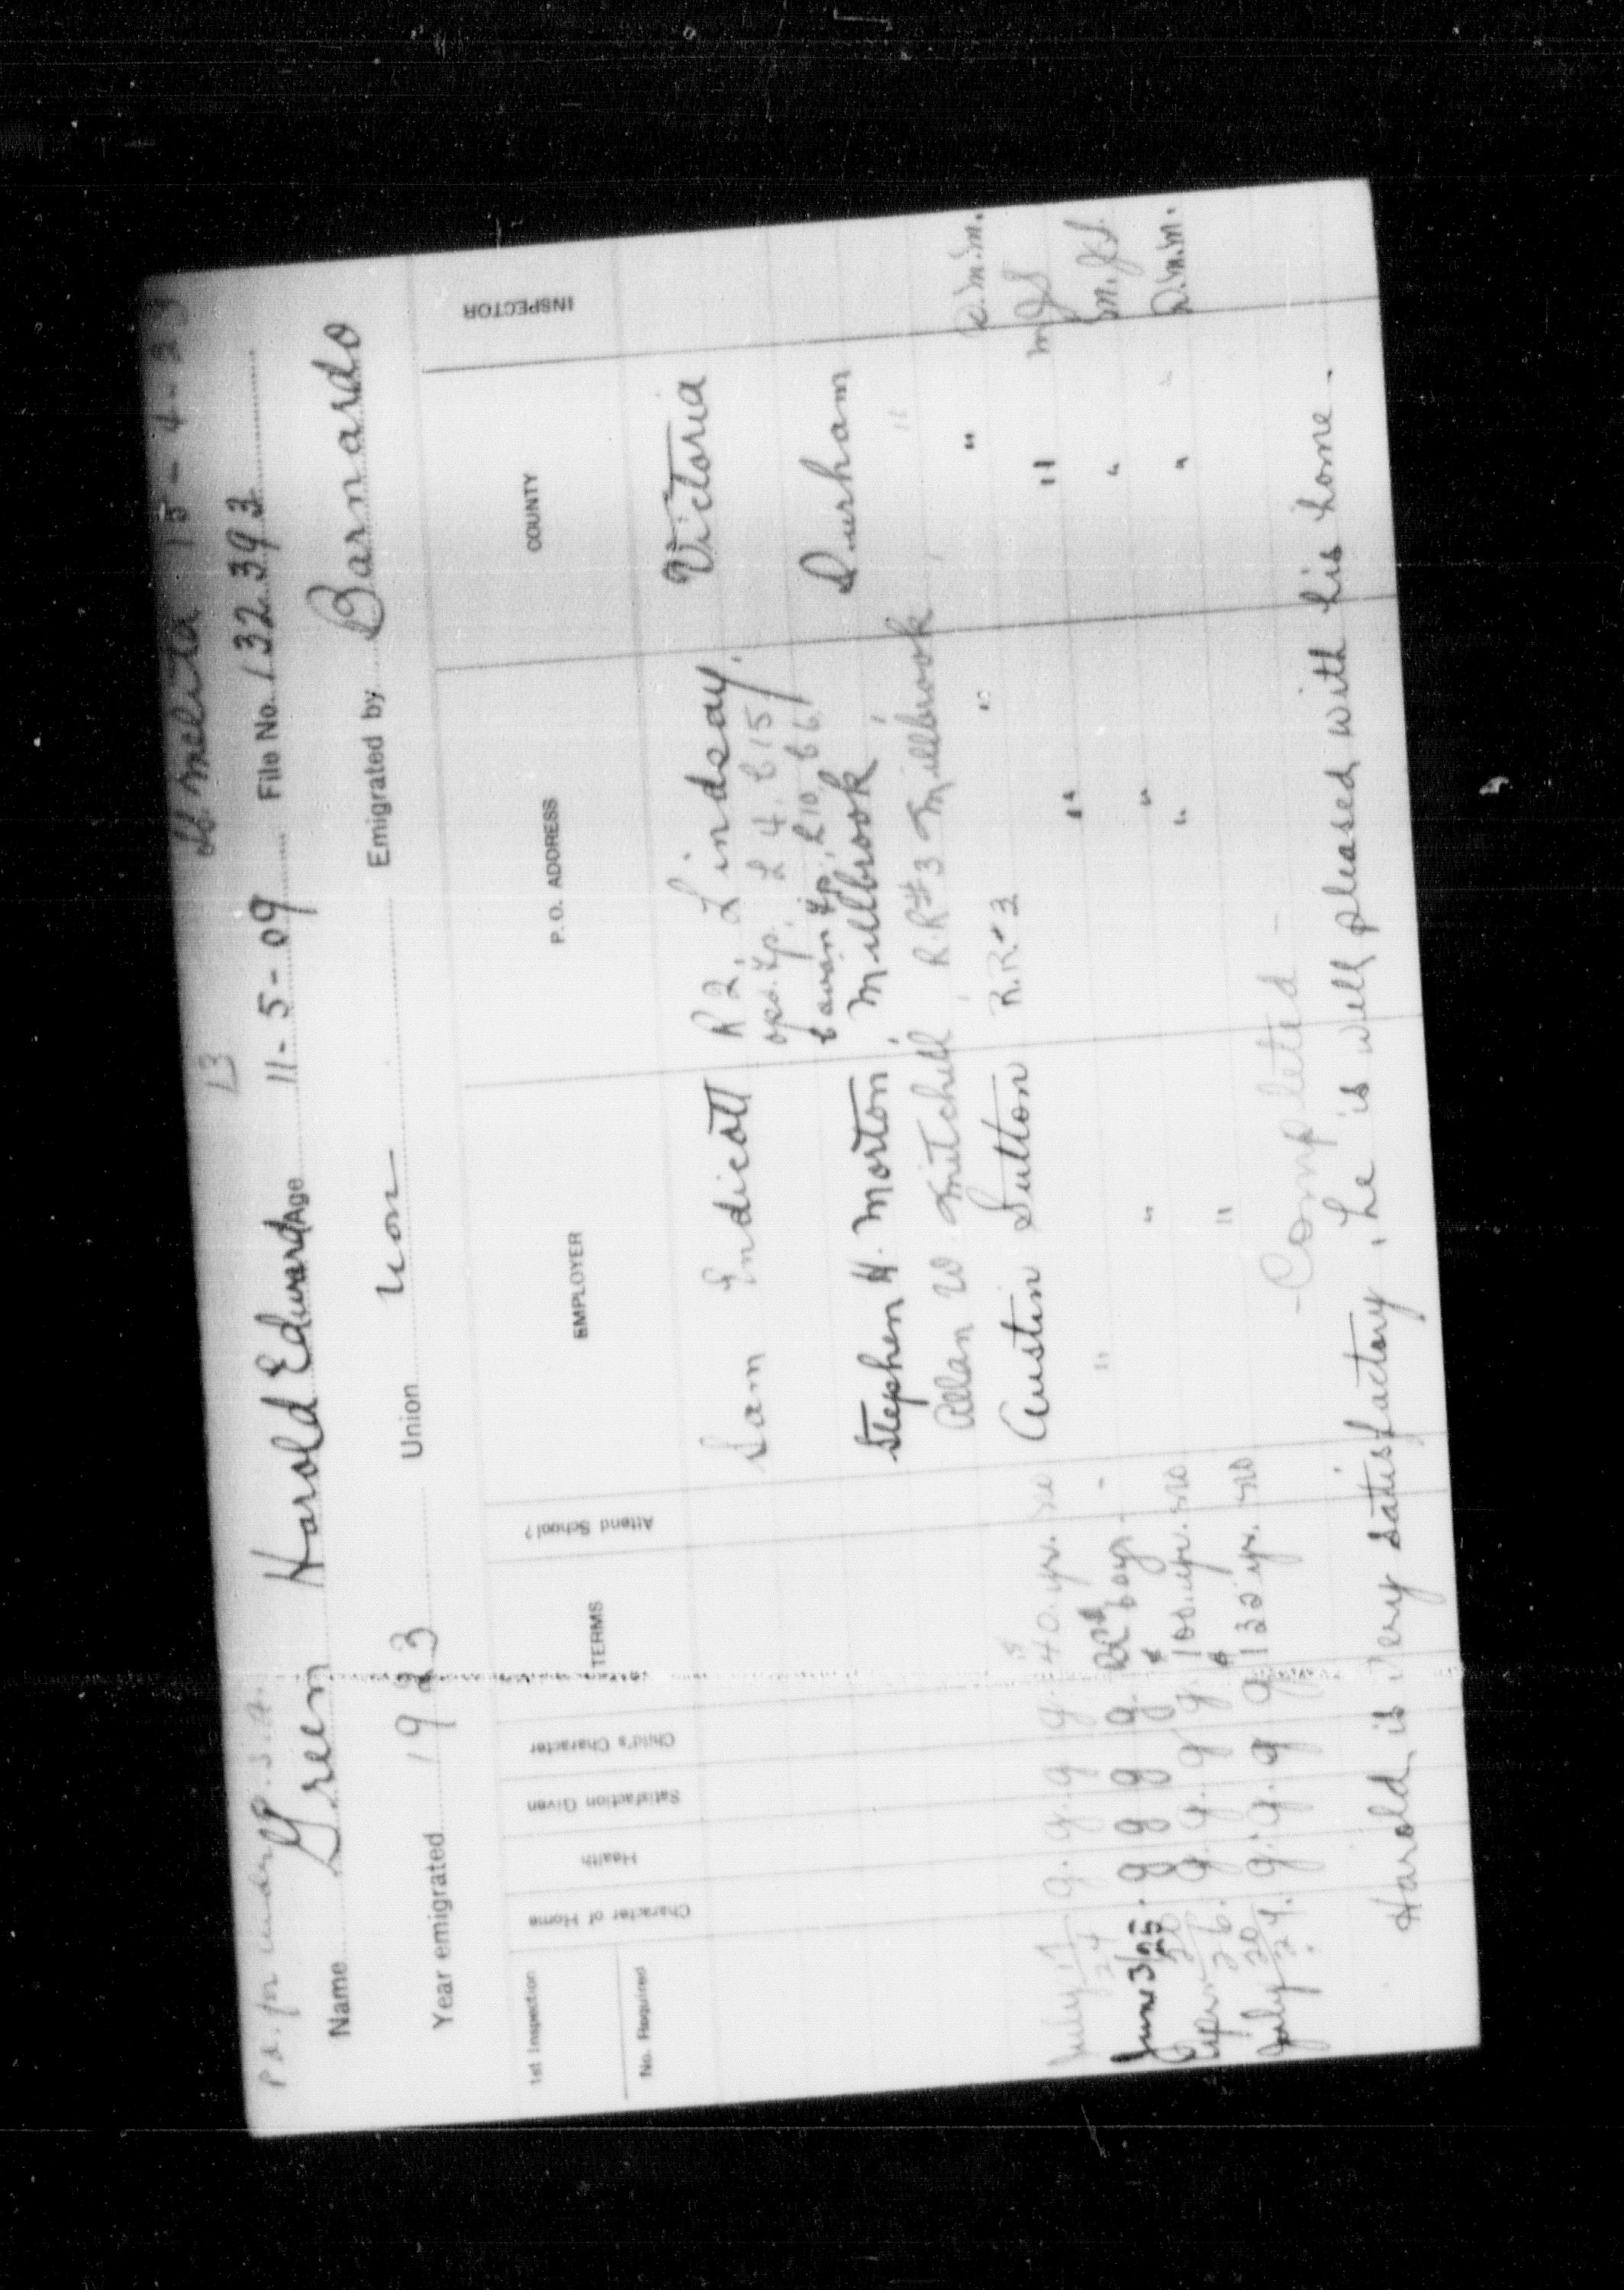 Pd. for under P.S.A. 13 SS. Melita 13-4-23
Name Green Harold Edward Age 11-5-09 File No. 132393
Year emigrated 1923 Union non Emigrated by Barnardo
1st Inspection
No. Required
Character of Home Health Satisfaction Given Child's Character TERMS Attend School? EMPLOYER P.O. ADDRESS COUNTY INSPECTOR
Sam Endicott R 2, Lindsay, Victoria
Ops. Tp. L 4. C 15
Cavan Tp. L 10 C 6
Stephen H. Morton, Millbrook, Durham
Allan W Mitchell, R.R#3 Millbrook "
July 17/24 g. g. g g. $40 yr. no Austin Sutton R.R.#3 " " D.M.M.
June 3/25. g g g g - " " " MJS
20/26. g. g. g g. $100 yr. no " " " M.J.S.
July 20/27. g. g. g g $132 yr. no " " " D.M.M.
- Completed -
Harold is very satisfactory, he is well pleased with his home.